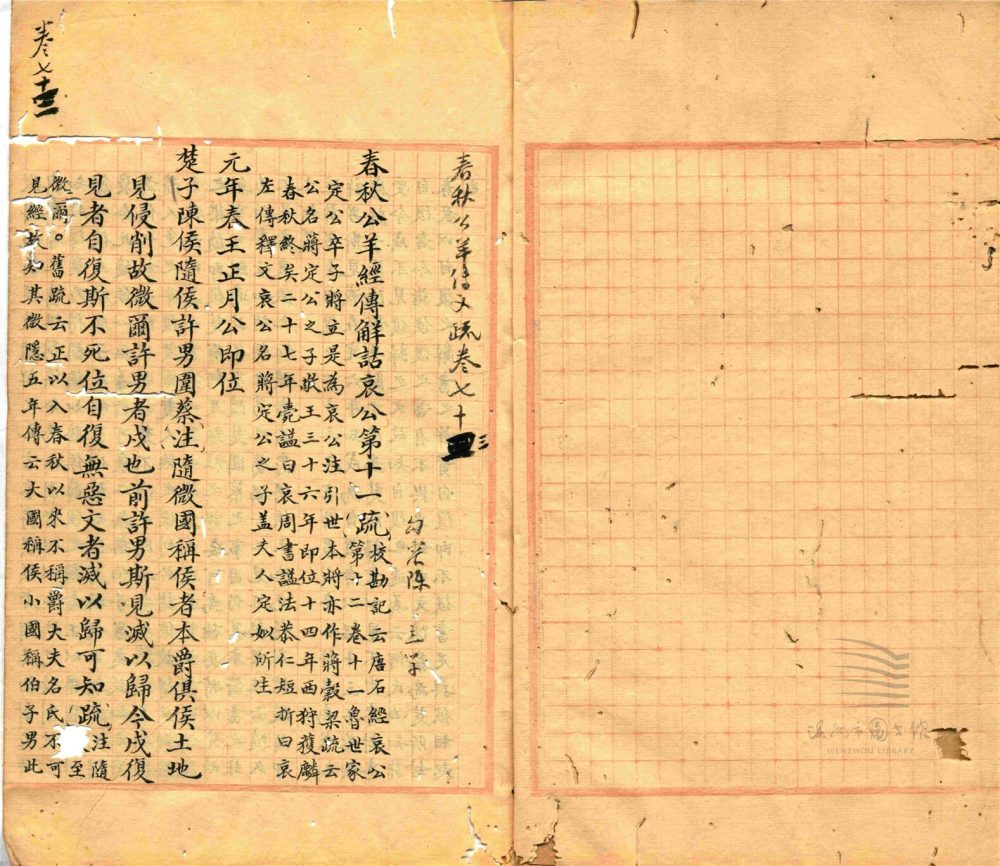 春秋公羊傳義疏卷七十三
句容陳立學
春秋公羊經傳解詁哀公第十一疏校勘記云唐石經哀公
第十二卷十一魯世家
定公卒子將立是為哀公注引世本將亦作蔣穀梁疏云
公名蔣定公之子敬王三十六年即位十四年西狩獲麟
春秋終矣二十七年薨謚曰哀周書謚法恭仁短折曰哀
左傳釋文哀公名蔣定公之子蓋夫人定姒所生
元年春王正月公即位
楚子陳侯隨侯許男圍蔡注隨微國稱侯者本爵俱侯土地
見侵削故微爾許男者戍也前許男斯見滅以歸今戍復
見者自復斯不死位自復無惡文者滅以歸可知疏注隨
至
微爾。舊疏云正以入春秋以來不稱爵大夫名氏不可
見經故知其微隱五年傳云大國稱侯小國稱伯子男此
卷七十三
溫州市圖書館
WENZHOU LIBRARY